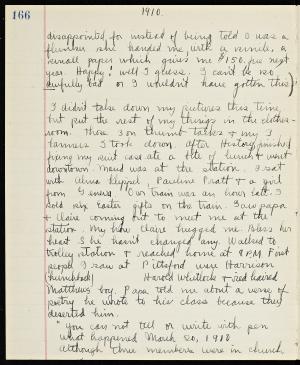 166
1910.
disappointed for instead of being told I was a
flunker she handed me, with a smile, a
small paper which gives me $150. for next
year. Happy! well I guess. I can't be so
awfully bad or I wouldn't have gotten this)
I didn't take down my pictures this time,
but put the rest of my things in the clothes-
room. Those on trunk tables & my
I took down. After History, finished
packing my suit case ate a bite of lunch & went
downtown. Maud was at the station. I sat
with Anna Keppel, Pauline Pratt & a girl
from. Our train was an hour late. I
told six Easter gifts on the train. I saw papa
& Claire coming out to meet me at the
station. My how Claire hugged me. Bless her
heart She hasn't changed any. Walked to
trolley station & reached home at 9 P.M. First
people I saw at Pittsford were Harrison
Harold Whitlock & red haired
Matthews boy. Papa told me about a verse of
poetry he wrote to his class because they
deserted him.
" You can not tell or write with pen
what happened March 20, 1910
although three members were in church